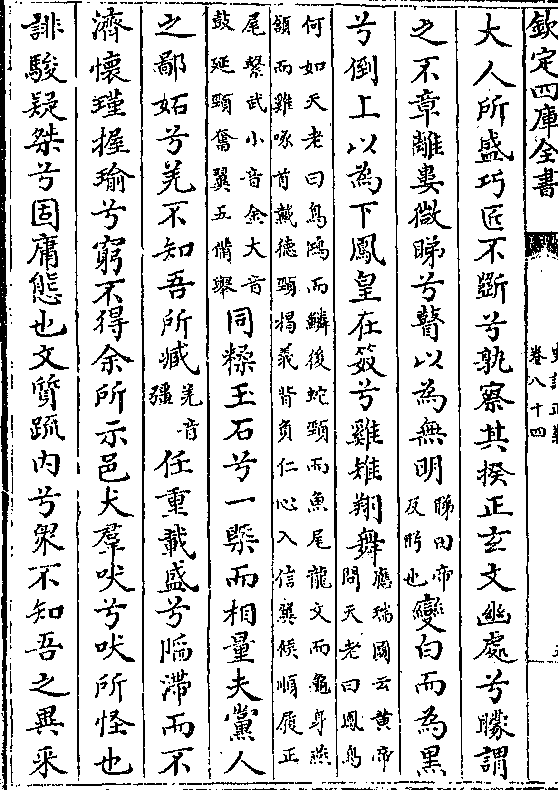 欽定四庫全書
卷八十四
大人所盛巧匠不斵兮孰察其揆正玄文幽處兮矇謂
之不章離婁微睇兮瞽以為無明睇田帝反眄也變白而為黑
兮倒上以為下鳳皇在笯兮雞雉翔舞應瑞圖云黄帝問天老曰鳳鳥
何如天老曰鳥鴻而鱗後蛇頸而魚尾龍文而龜身燕
頷而雞喙首戴德頸揭義背負仁心入信翼候順履正
尾繫武小音金大音鼓延頸奮翼五備舉同糅玉石兮一槩而相量夫黨人
之鄙妬兮羌不知吾所臧羌音彊任重載盛兮陷滯而不
濟懷瑾握瑜兮窮不得余所示邑犬羣吠兮吠所怪也
誹駿疑桀兮固庸態也文質疏内兮衆不知吾之異采